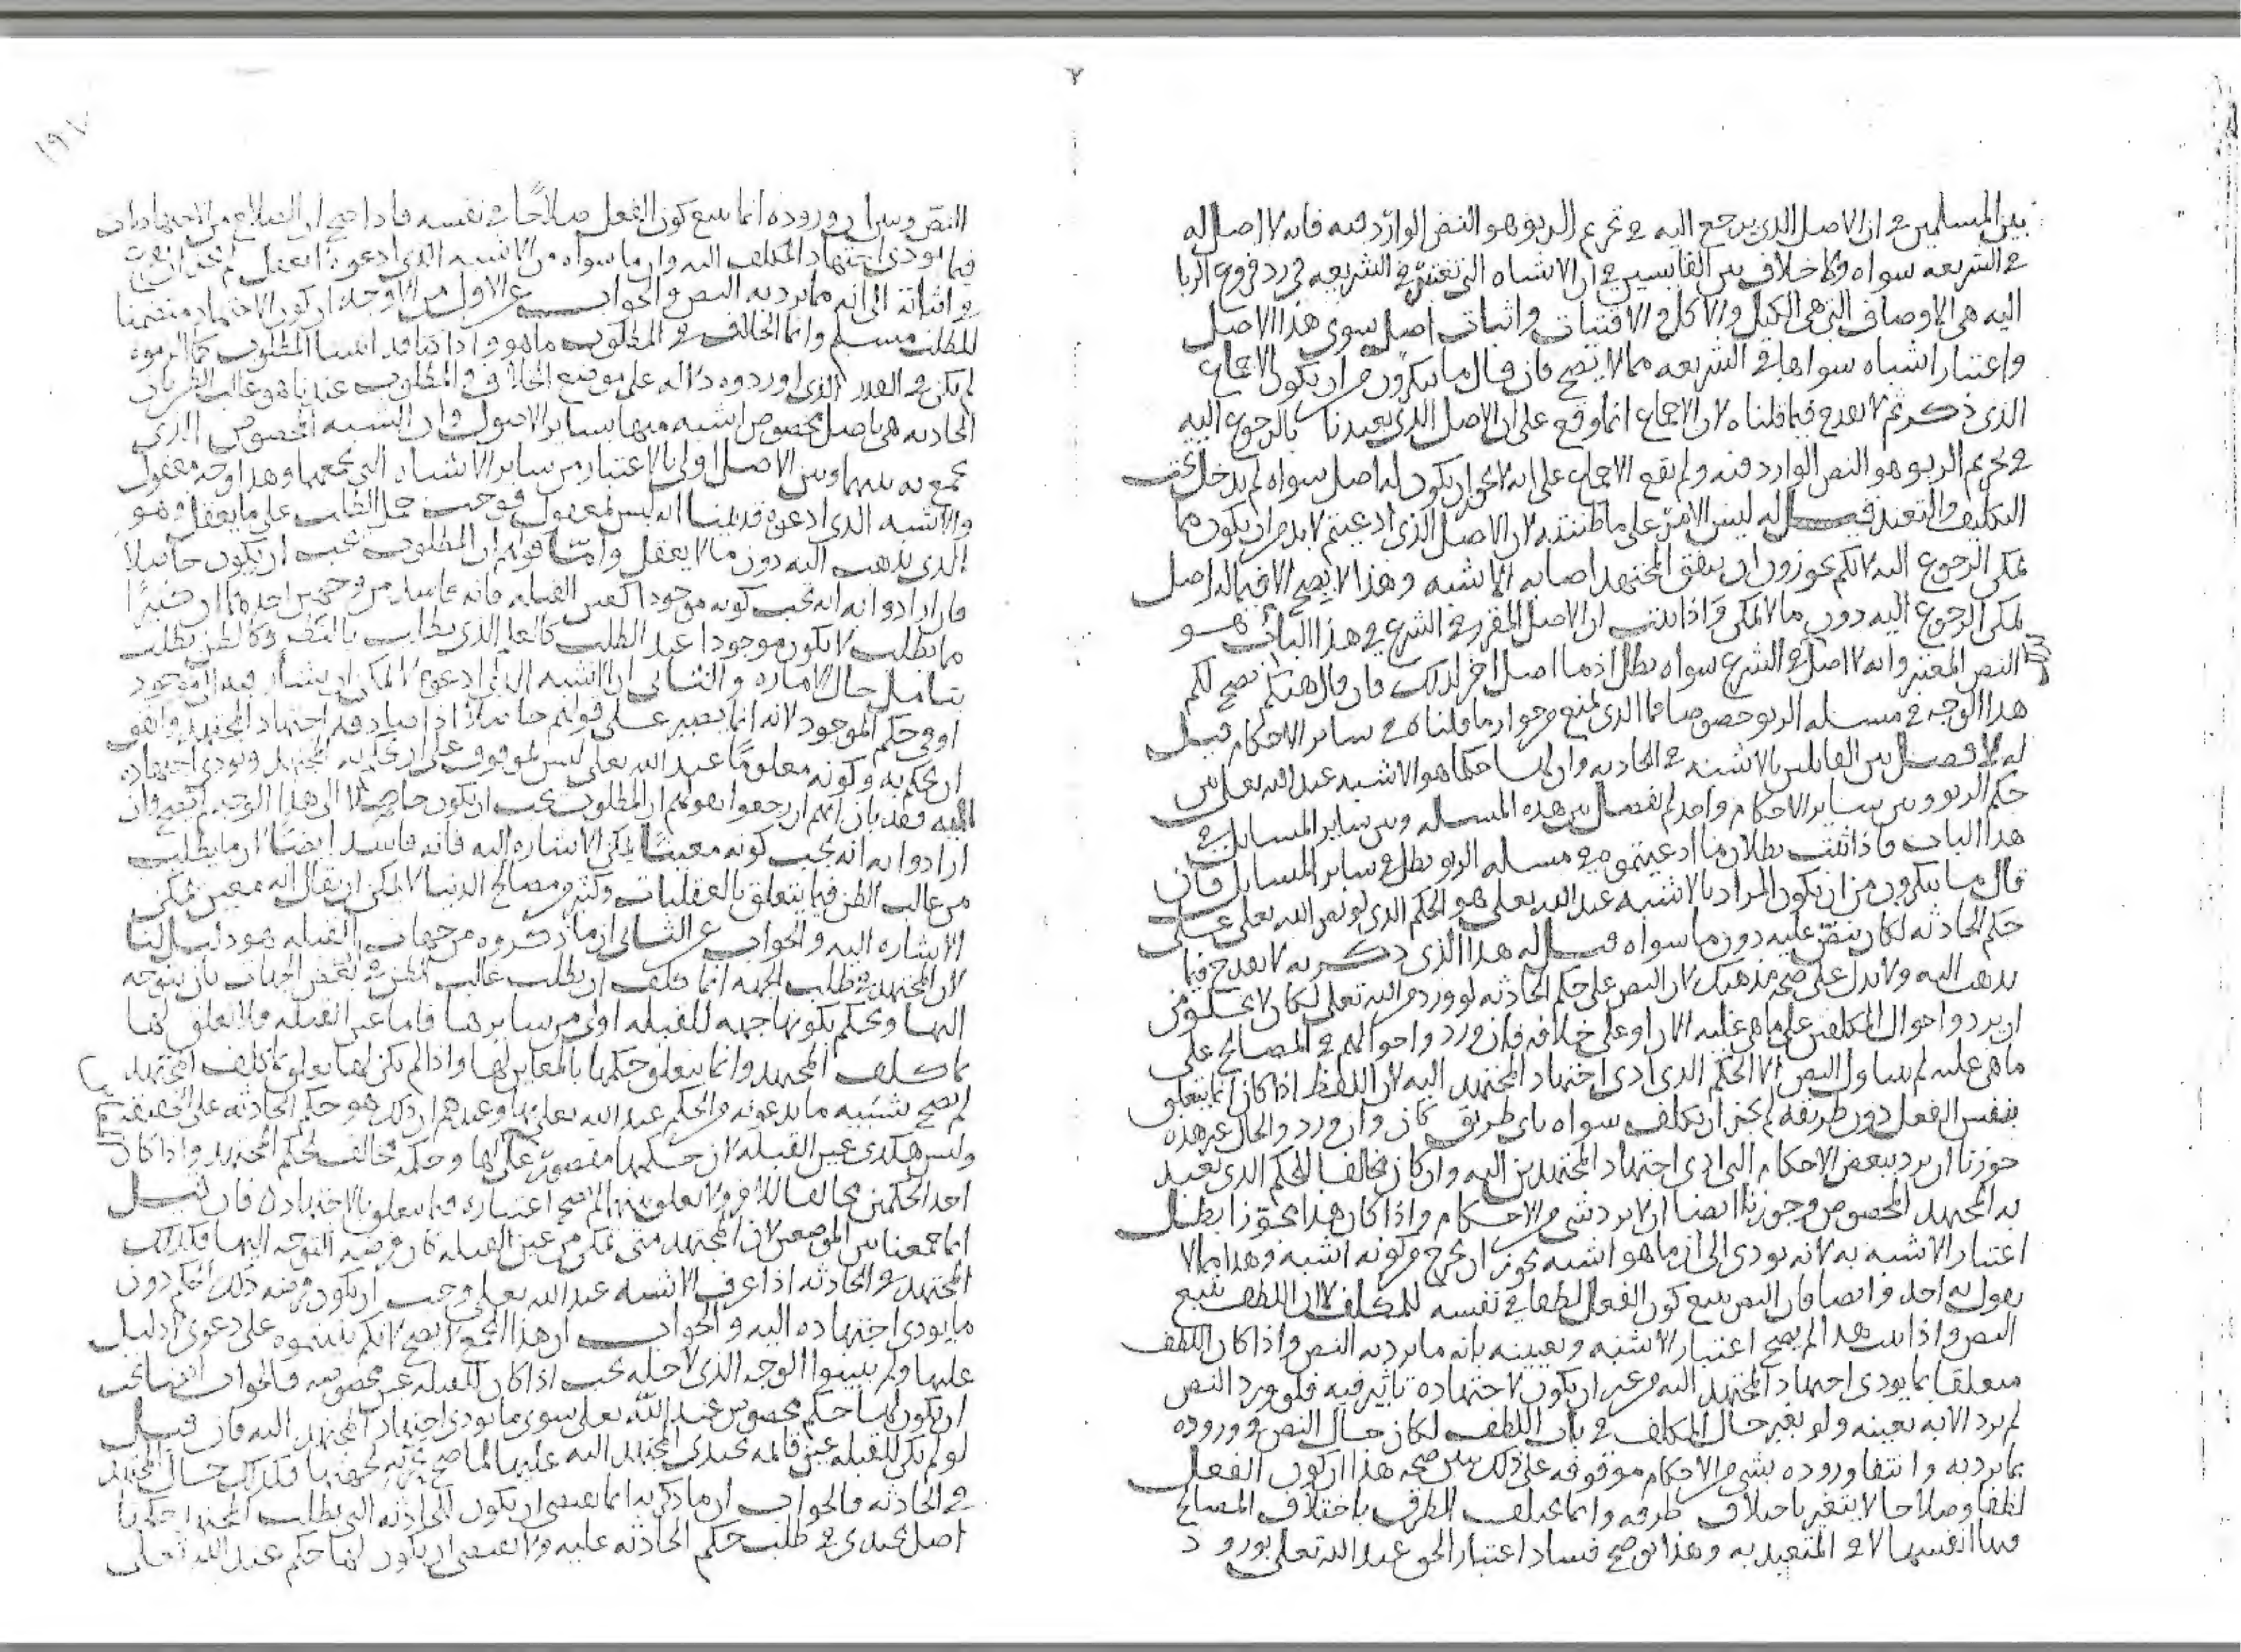 بين المسلمين في ان الاصل الذي يرجع اليه في تحريم الربو هو النص الوارد فيه فانه لا اصل له
في الشريعه سواه ولا خلاف بين القايسين في ان الاشباه التي تعتبر في الشريعه في رد فروع الربا
اليه هي الاوصاف التي هي الكيل والاكل والاقتيات واثبات اصل سوى هذا الاصل
واعتبار اشباه سواها في الشريعه مما لا يصح فان قال ما ينكرون من ان يكون الاجماع
الذي ذكرتم لا يقدح فيما قلناه لان الاجماع انما وقع على ان الاصل الذي تعبدنا بالرجوع اليه
في تحريم الربو هو النص الوارد فيه ولم يقع الاجماع على انه لا يجوز ان يكون له اصل سواه لم يدخل تحت
التكليف والتعبد قيل له ليس الامر على ما ظننته لان الاصل الذي ادعيتم لا بد من ان يكون مما
يمكن الرجوع اليه لانكم تجوزون ان يتفق للمجتهد اصابه الاشبه وهذا لا يصح الا فيما له اصل
يمكن الرجوع اليه دون ما لا يمكن واذا ثبت ان الاصل المقرر في الشرع في هذا الباب هو
النص المعتبر وانه لا اصل في الشرع سواه بطل اذ ما اصل اخر لذلك فان قال هب انه يصح لكم
هذا الوجه في مسله الربو خصوصا فما الذي يمنع من جواز ما قلناه في ساير الاحكام قيل
له لا فصل بين القايلين بالاشبه في الحادثه وان لها حكما هو الاشبه عند الله تعلى بين
حكم الربو وبين ساير الاحكام واحد لم يفصل بين هذه المسله وبين ساير المسايل في
هذا الباب فاذا ثبت بطلان ما ادعيتموه في مسله الربو بطل في ساير المسايل فان
قال ما ينكرون من ان يكون المراد بالاشبه عند الله تعلى هو الحكم الذي لو نص الله تعلى على
حكم الحادثه لكان ينص عليه دون ما سواه قيل له هذا الذي ذكرته لا يقدح فيما
نذهب اليه ولا يدل على صحه مذهبك لان النص على حكم الحادثه لو ورد من الله تعلى لكان لا يخلو من
ان يرد واحوال المكلفين على ما هي عليه الان او على خلافه فان ورد واحوالهم في المصالح على
ما هي عليه لم يتناول النص الا الحكم الذي ادى اجتهاد المجتهد اليه لان اللطف اذا كان انما يتعلق
بنفس الفعل دون طريقه لم يجز ان يكلف سواه باي طريق كان وان ورد والحال غير هذه
جوزنا ان يرد ببعض الاحكام التي ادى اجتهاد المجتهدين اليه وان كان مخالفا للحكم الذي تعبد
به المجتهد المخصوص وجوزنا ايضا ان لا يرد بشي من الاحكام واذا كان هذا مجوزا بطل
اعتبار الاشبه به لانه يودي الى ان ما هو اشبه يجوز ان يخرج من كونه اشبه وهذا مما لا
يقول به احد وايضا فان النص يتبع كون الفعل لطفا في نفسه للمكلف لان اللطف يتبع
النص واذا ثبت هذا لم يصح اعتبار الاشبه وتعيينه بانه ما يرد به النص واذا كان اللطف
متعلقا بما يودي اجتهاد المجتهد اليه من غير ان يكون لاجتهاده تاثير فيه فلو ورد النص
لم يرد الا به بعينه ولو تغير حال المكلف في باب اللطف لكان حال النص في وروده
بما يرد به وانتفا وروده بشي من الاحكام موقوفه على ذلك يبين صحه هذا ان كون الفعل
لطفا وصلاحا لا يتغير باختلاف طرقه وانما تختلف الطرق باختلاف المصالح
فيها انفسها لا في المتعبد به وهذا يوضح فساد اعتبار الحق عند الله تعلى بورود
١٩٧
النص وبين ان وروده انما يتبع كون الفعل صلاحا في نفسه فاذا صح ان الصلاح من الاجتهادات
فيما يودي اجتهاد المكلف اليه وان ما سواه من الاشبه الذي ادعوه لا يعقل لم يجز ان
في اثباته الى انه مما يرد به النص والجواب عن الاول من الاوجه ان كون الاجتهاد متضمنا
للطلب مسلم وانما الخلاف في المطلوب ما هو واذا كنا قد اثبتنا المطلوب كما الزموه
لم يكن في القدر الذي اوردوه دلاله على موضع الخلاف في المطلوب عندنا هو غالب الظن بان
الحادثه هي باصل مخصوص اشبه منها بساير الاصول وان الشبه المخصوص الذي
يجمع به بينها وبين الاصل اولى بالاعتبار من ساير الاشباه التي تجمعها وهذا وجه معقول
والاشبه الذي ادعوه قد بينا انه ليس بمعقول فوجب حمل الطلب على ما يعقل وهو
الذي نذهب اليه دون ما لا يعقل واما قولهم ان المطلوب يجب ان يكون حاصلا
فان ارادوا به انه يجب كونه موجودا كعين القبله فانه فاسد من وجهين احدهما ان كثيرا
ما يطلب لا يكون موجودا عند الطلب كالعلم الذي يطلب بالنظر وكالظن يطلب
بتامل حال الاماره والثاني ان الاشبه الذي ادعوه لا يمكن ان يشار به الى موجود
او في حكم الموجود لانه انما يصير على قولهم حاصلا اذا صادفه اجتهاد المجتهد واهو
ان يحكم به وكونه معلوما عند الله تعلى ليس بموقوف على ان يحكم به المجتهد ويودي اجتهاده
اليه فقد بان انهم ان رجعوا بقولهم ان المطلوب يجب ان يكون حاصلا الى هذا الوجه لم يصح وان
ارادوا به انه يجب كونه معينا يمكن الاشاره اليه فانه فاسد ايضا لان ما يطلب
من غالب الظن فيما يتعلق بالعقليات وكثير من مصالح الدنيا لا يمكن ان يقال انه معين يمكن
الاشاره اليه والجواب عن الثاني ان ما ذكروه من جهات القبله هو دليل لنا
لان المجتهد في طلب الجهه انما كلف ان يطلب غالب الظن في بعض الجهات بان يتوجه
اليها ويحكم بكونها جهه للقبله اولى من سايرها فاما عين القبله فلا تعلق لها
بما كلف المجتهد وانما يتعلق حكمها بالمعاين لها واذا لم يكن لها تعلق بما كلف المجتهد
لم يصح تشبيه ما يدعونه من الحكم عند الله تعلى بها وعندهم ان ذلك هو حكم الحادثه على الحقيقه
وليس هكذى عين القبله لان حكمها مقصور على اهلها وحكمه مخالف لحكم المجتهد واذا كان
احد الحكمين مخالفا للاخر ولا تعلق بينهما لم يصح اعتباره فيما يتعلق بالاجتهاد فان قيل
انما جمعنا بين الموضعين لان المجتهد متى تمكن من عين القبله كان فرضه التوجه اليها فكذلك
المجتهد في الحادثه اذا عرف الاشبه عند الله تعلى وجب ان يكون فرضه ذلك الحكم دون
ما يودي اجتهاده اليه والجواب ان هذا الجمع لا يصح لانكم بنيتموه على دعوى لا دليل
عليها ولم تبينوا الوجه الذي لاجله يجب اذا كان للقبله عين مخصوصه فالجواب انها يجب
ان يكون لها حكم مخصوص عند الله تعلى سوى ما يودي اجتهاد المجتهد اليه فان قيل
لو لم يكن للقبله عين قايمه يجتدي المجتهد اليه عليها لما صح تحريه لجهتها فكذلك حال المجتهد
في الحادثه فالجواب ان ما ذكرته انما يقتضي ان يكون للحادثه التي يطلب المجتهد حكمها
اصل يحتذى في طلب حكم الحادثه عليه ولا يقتضي ان يكون لها حكم عند الله تعلى